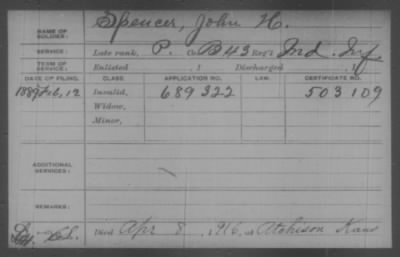 NAME OF SOLDIER: Spencer, John H.
SERVICE: Late rank, P. Co. B 43 Reg't Ind. Inf.
TERM OF SERVICE: Enlisted , 1 Discharged , 1
DATE OF FILING. CLASS. APPLICATION NO. LAW. CERTIFICATE NO.
1889 Feb, 12 Invalid, 689322 503109
Widow,
Minor,
ADDITIONAL SERVICES:
REMARKS:
Died Apr 8, 1916, at Atchison Kans